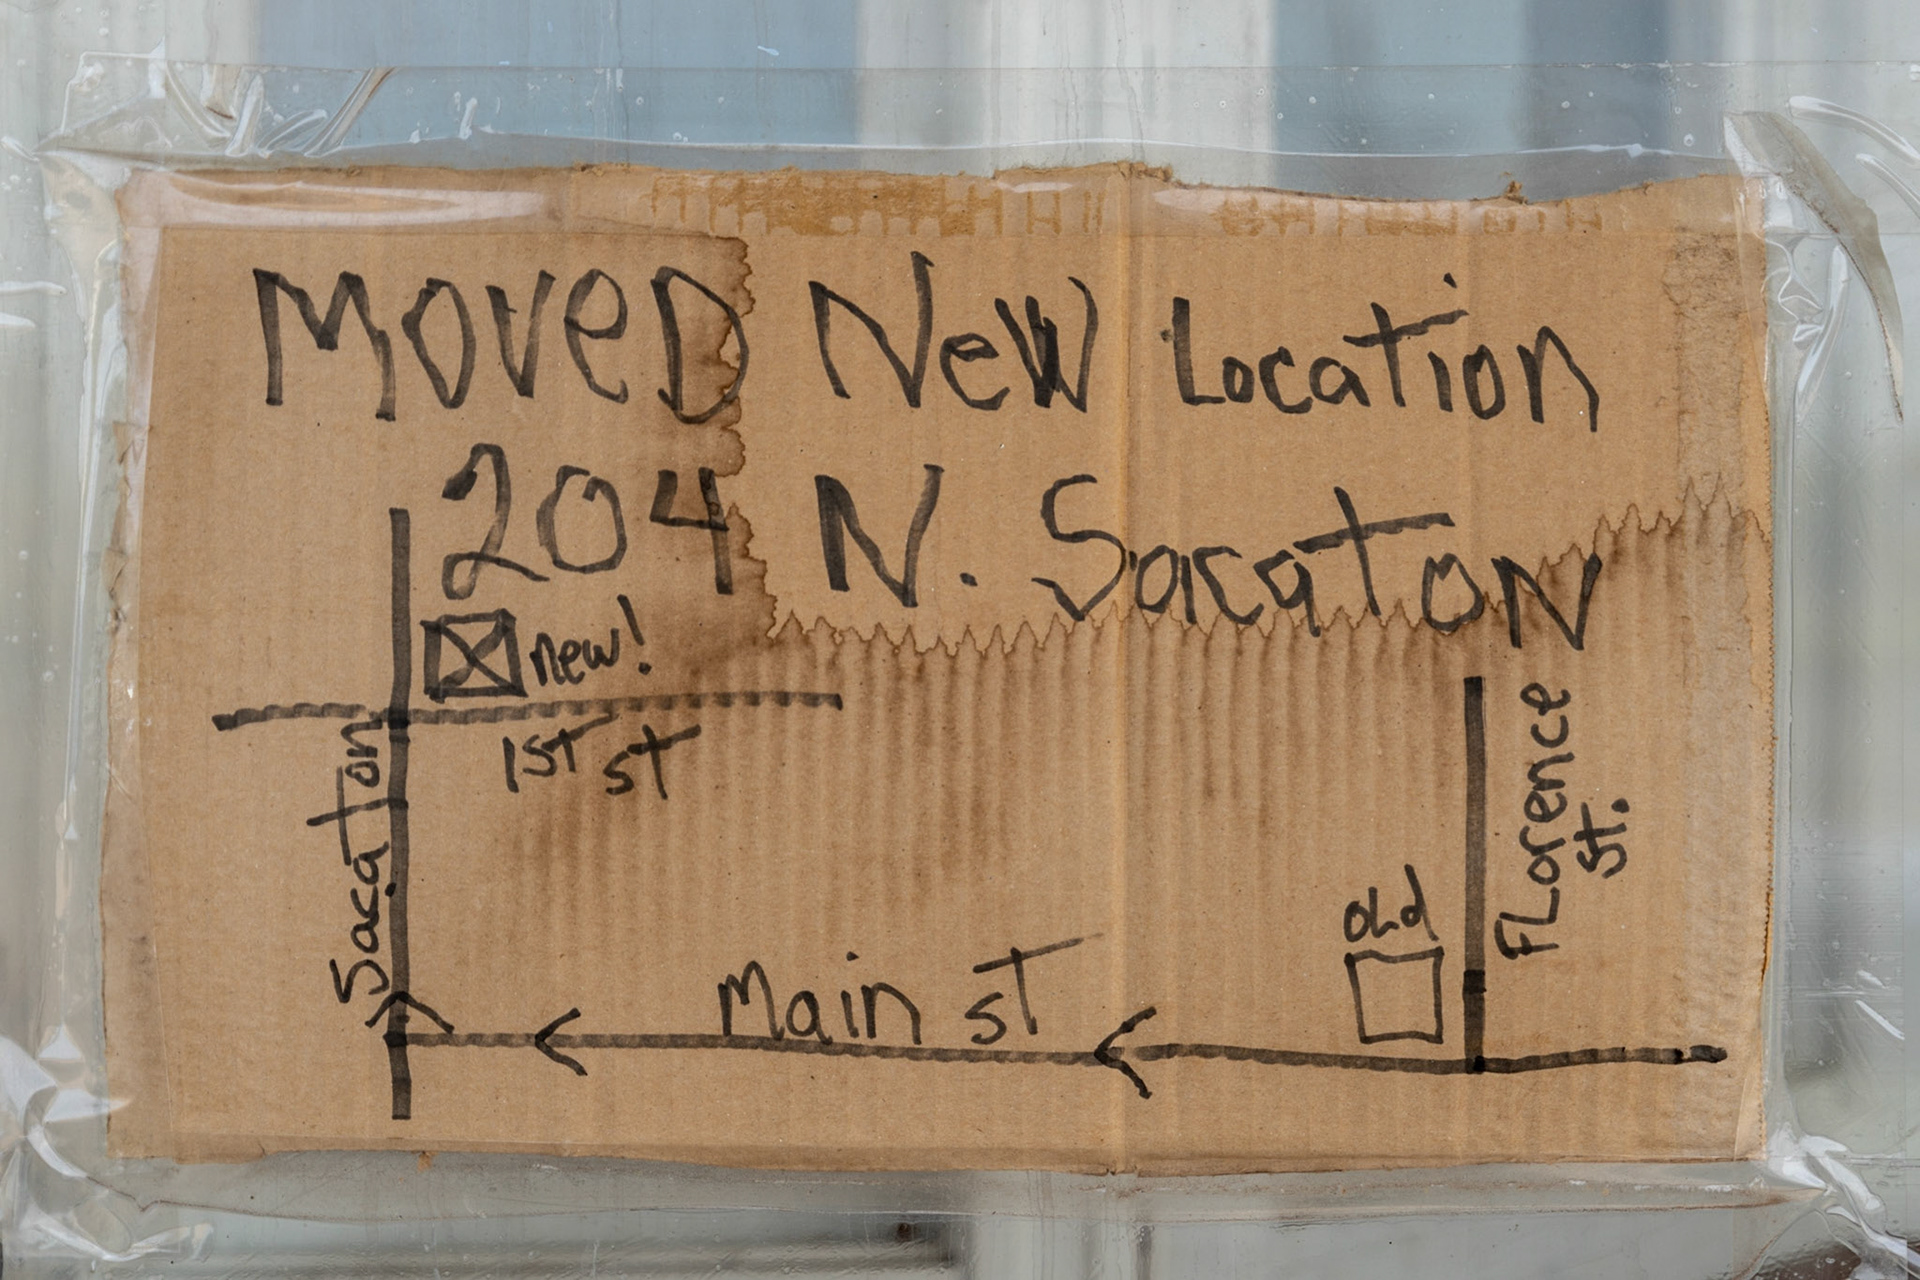 MoveD New Location
204 N. SacatoN
new!
1st st
Sacaton
Florence
st.
old
Main st